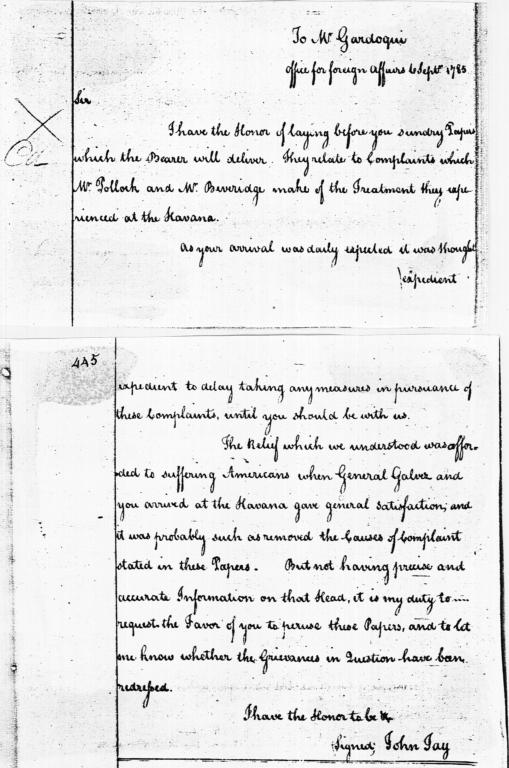 To Mr Gardoqui
Office for foreign Affairs 6 Septr 1785
Sir
I have the Honor of laying before you sundry Papers
which the Bearer will deliver. They relate to Complaints which
Mr Pollock and Mr Beveridge make of the Treatment they expe
rienced at the Havana.
As your arrival was daily expected it was thought
expedient
445
expedient to delay taking any measures in pursuance of
these Complaints, until you should be with us.
The Relief which we understood was affor-
ded to suffering Americans when General Galvez and
you arrived at the Havana gave general satisfaction; and
it was probably such as removed the Causes of Complaint
stated in these Papers. But not having precise and
accurate Information on that Head, it is my duty to
request the Favor of you to peruse these Papers, and to let
me know whether the Grievances in Question have been
redressed.
I have the Honor to be &c
Signed; John Jay